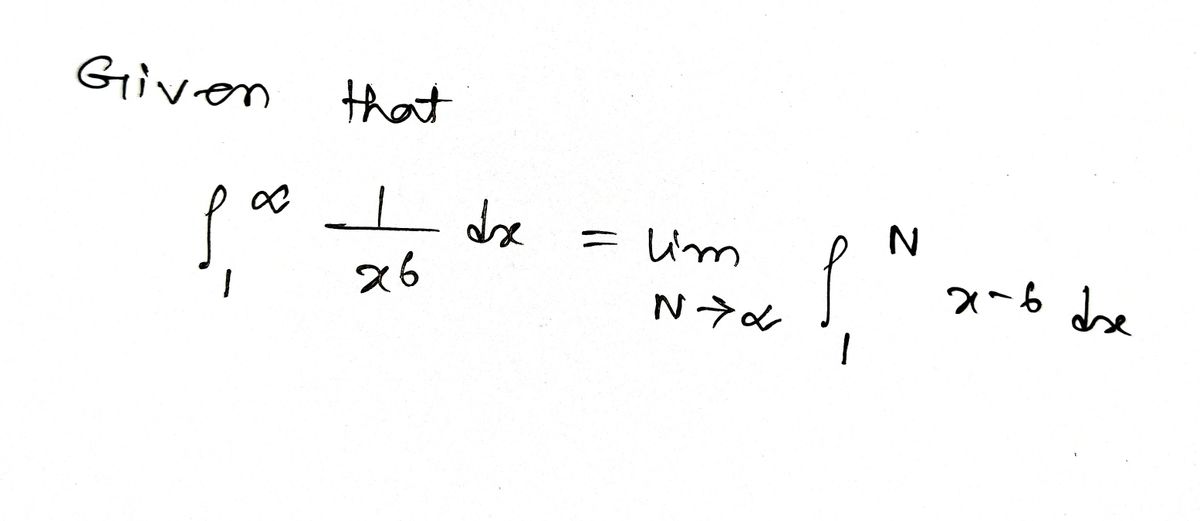 Given that
∫₁^∞ 1/x6 dx = lim N→∞ ∫₁^N x-6 dx